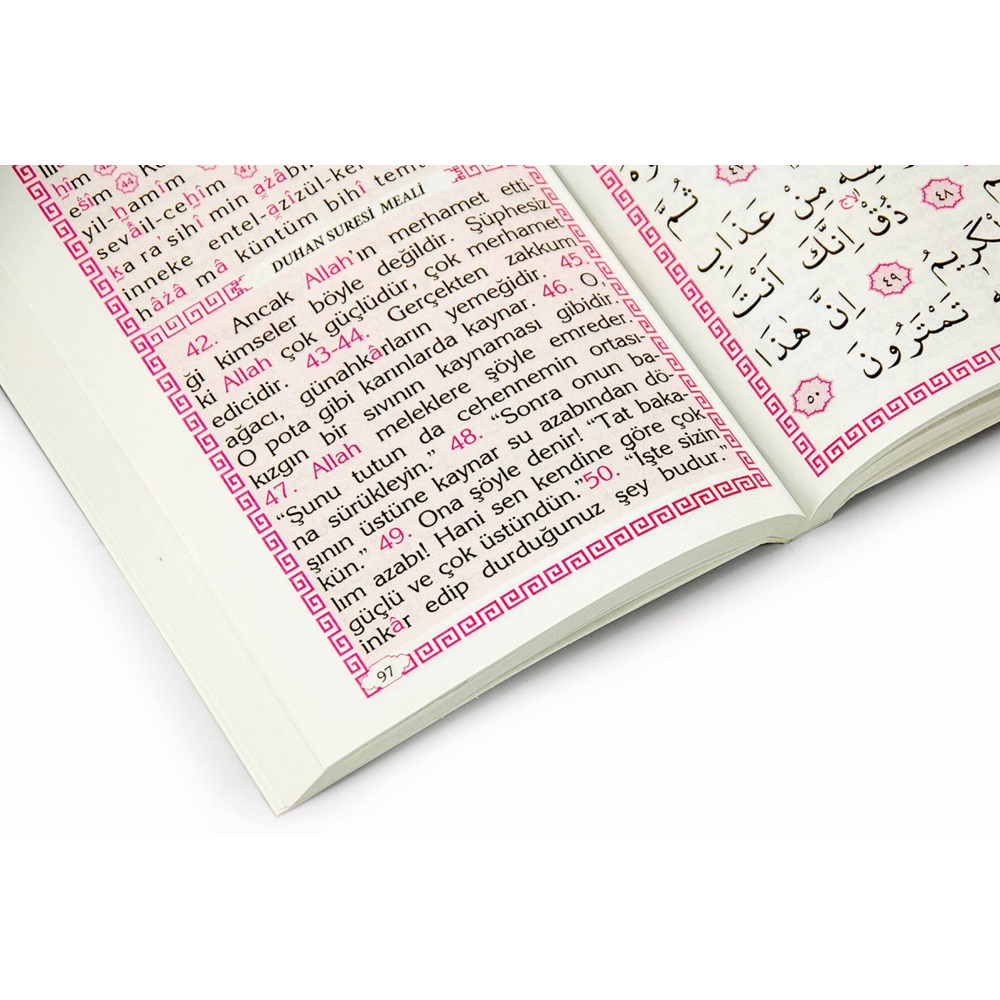 hîm 42
esîm 44 47
yil-hamîm
sevâil-cehîm min azâbi
ka ra'sihî entel-azîzül-ke
inneke küntüm bihî temt
hâzâ mâ
DUHAN SURESİ MEALİ
42. Ancak Allah'ın merhamet etti-
ği kimseler böyle değildir. Şüphesiz
ki Allah çok güçlüdür, çok merhamet
edicidir. 43-44. Gerçekten zakkum
ağacı, günahkârların yemeğidir. 45.
O pota gibi karınlarda kaynar. 46. O,
kızgın bir sıvının kaynaması gibidir.
47. Allah meleklere şöyle emreder.
“Şunu tutun da cehennemin ortası-
na sürükleyin.” 48. “Sonra onun ba-
şının üstüne kaynar su azabından dö-
kün.” 49. Ona şöyle denir! “Tat baka-
lım azabı! Hani sen kendine göre çok
güçlü ve çok üstündün.”50. “İşte sizin
inkâr edip durduğunuz şey budur.”
97
ثُمَّ
مِنْ عَذَابِ
٤٨ ذُقْ اِنَّكَ اَنْتَ
الْكَرِيمُ ٤٩ اِنَّ هٰذَا
تَمْتَرُونَ ٥٠